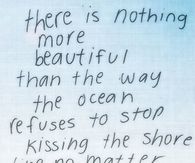 there is nothing
more
beautiful
than the way
the ocean
refuses to stop
kissing the shore
no matter